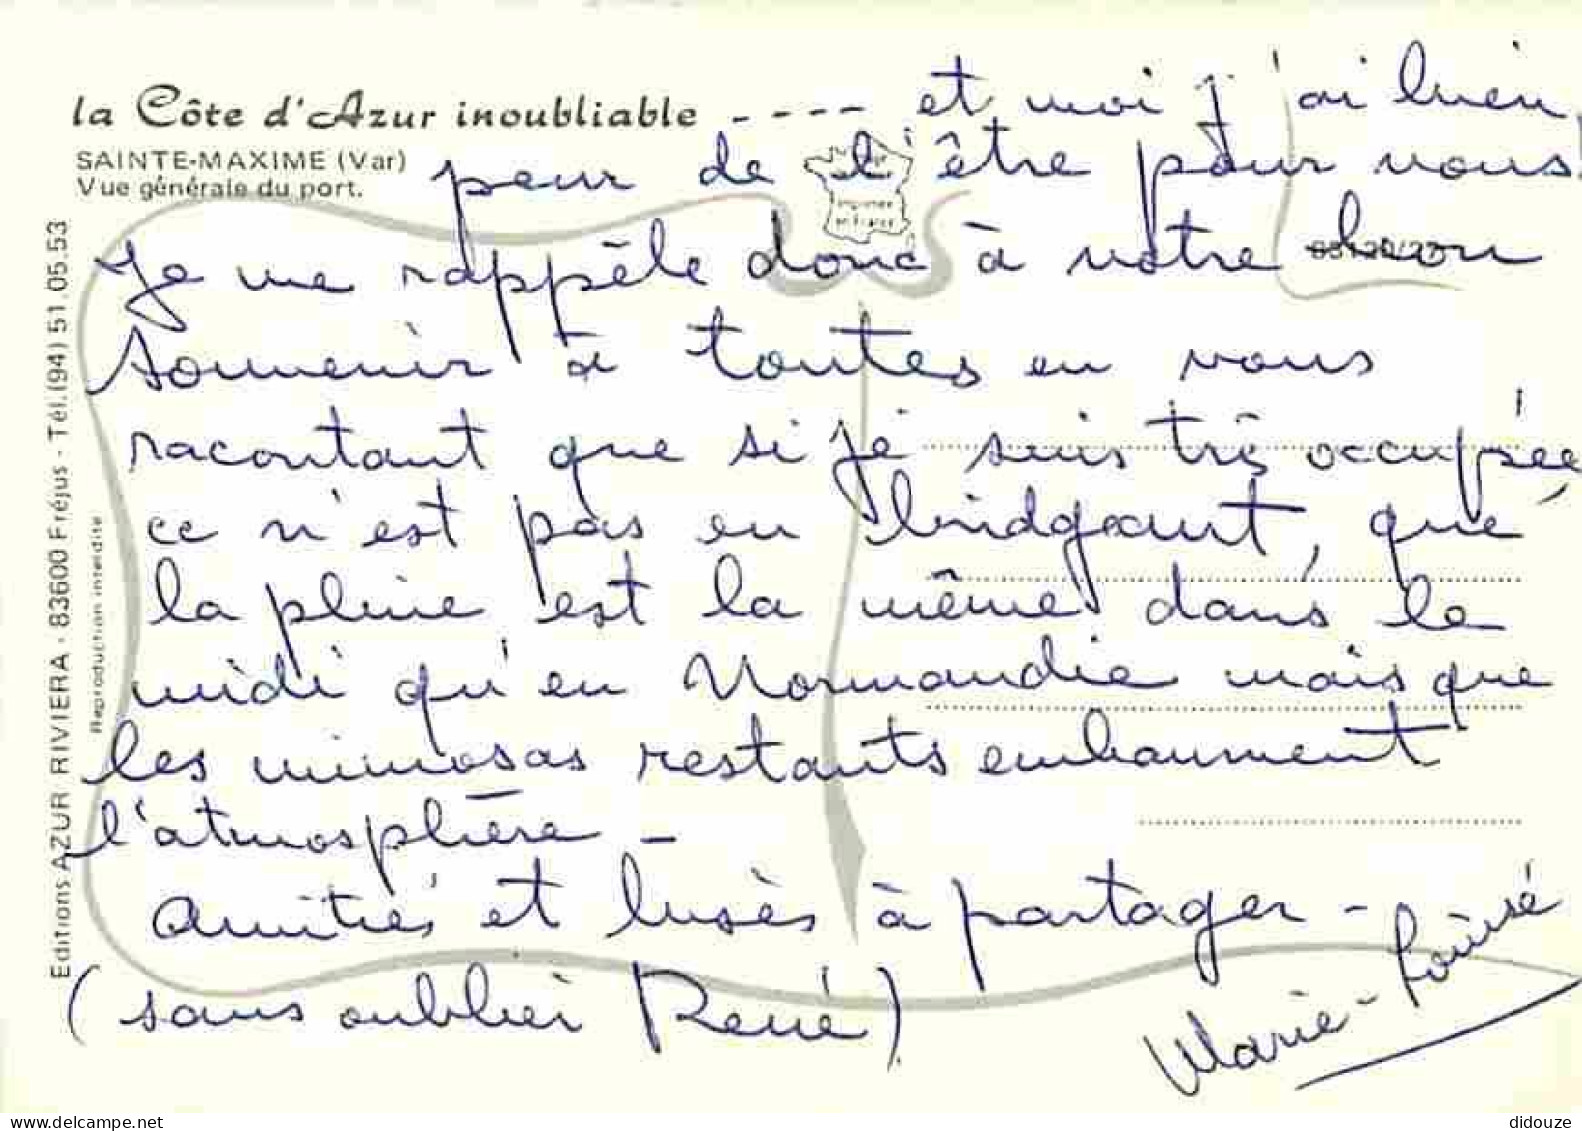 la Côte d'Azur inoubliable ---- et moi j'ai bien
SAINTE-MAXIME (Var)
Vue générale du port.
peur de l'être pour vous!
Imprimée en France
Je me rappèle donc à votre bon
souvenir à toutes en vous
racontant que si je suis très occupée
ce n'est pas en bridgeant, que
la pluie est la même dans le
midi qu'en Normandie mais que
les mimosas restants embaument
l'atmosphère -
Amitiés et bises à partager -
(sans oublier René)
Marie-Louise
Editions AZUR RIVIERA - 83600 Fréjus - Tél. (94) 51.05.53
Reproduction interdite
didouze